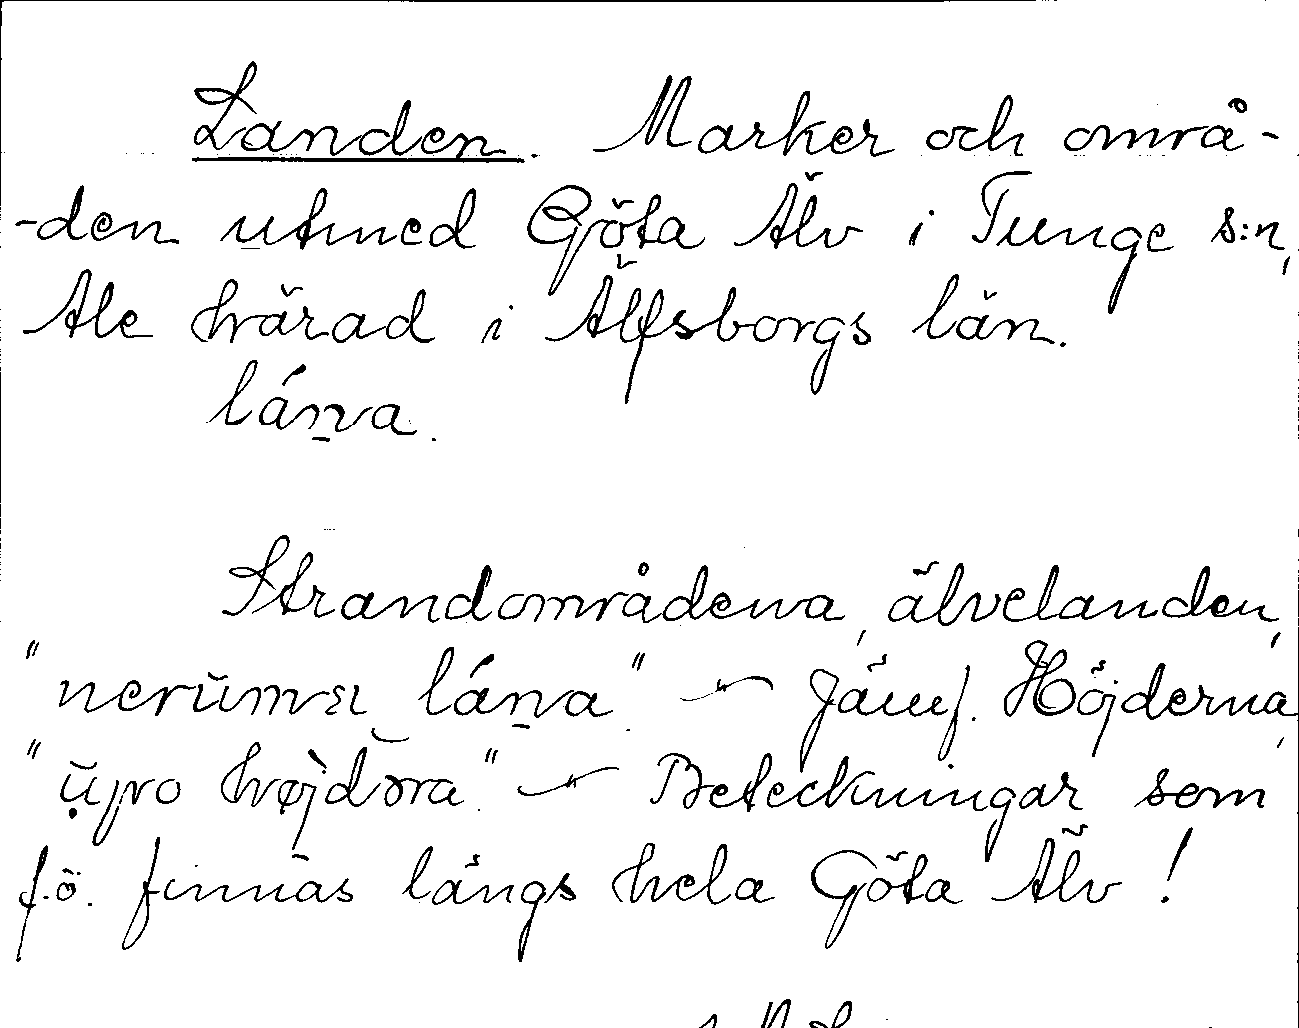 Landen. Marker och områ-
-den utmed Göta Älv i Tunge s:n,
Ale härad i Älfsborgs län.
lánna.
Strandområdena, älvelanden,
" lánna" — Jämf. Höjderna,
"uppo" — Beteckningar som
f.ö. finnas längs hela Göta Älv!